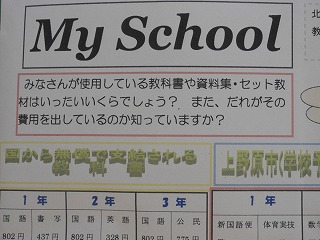 My School
北
教
みなさんが使用している教科書や資料集・セット教
材はいったいいくらでしょう？ また、だれがその
費用を出しているのか知っていますか？
国から無償で支給される
教科書
上野原市(学校予
1年 2年 3年 1年
国語 書写 国語 英語 国語 公民 新国語便 体育実技 数
802円 437円 802円 328円 802円 775円